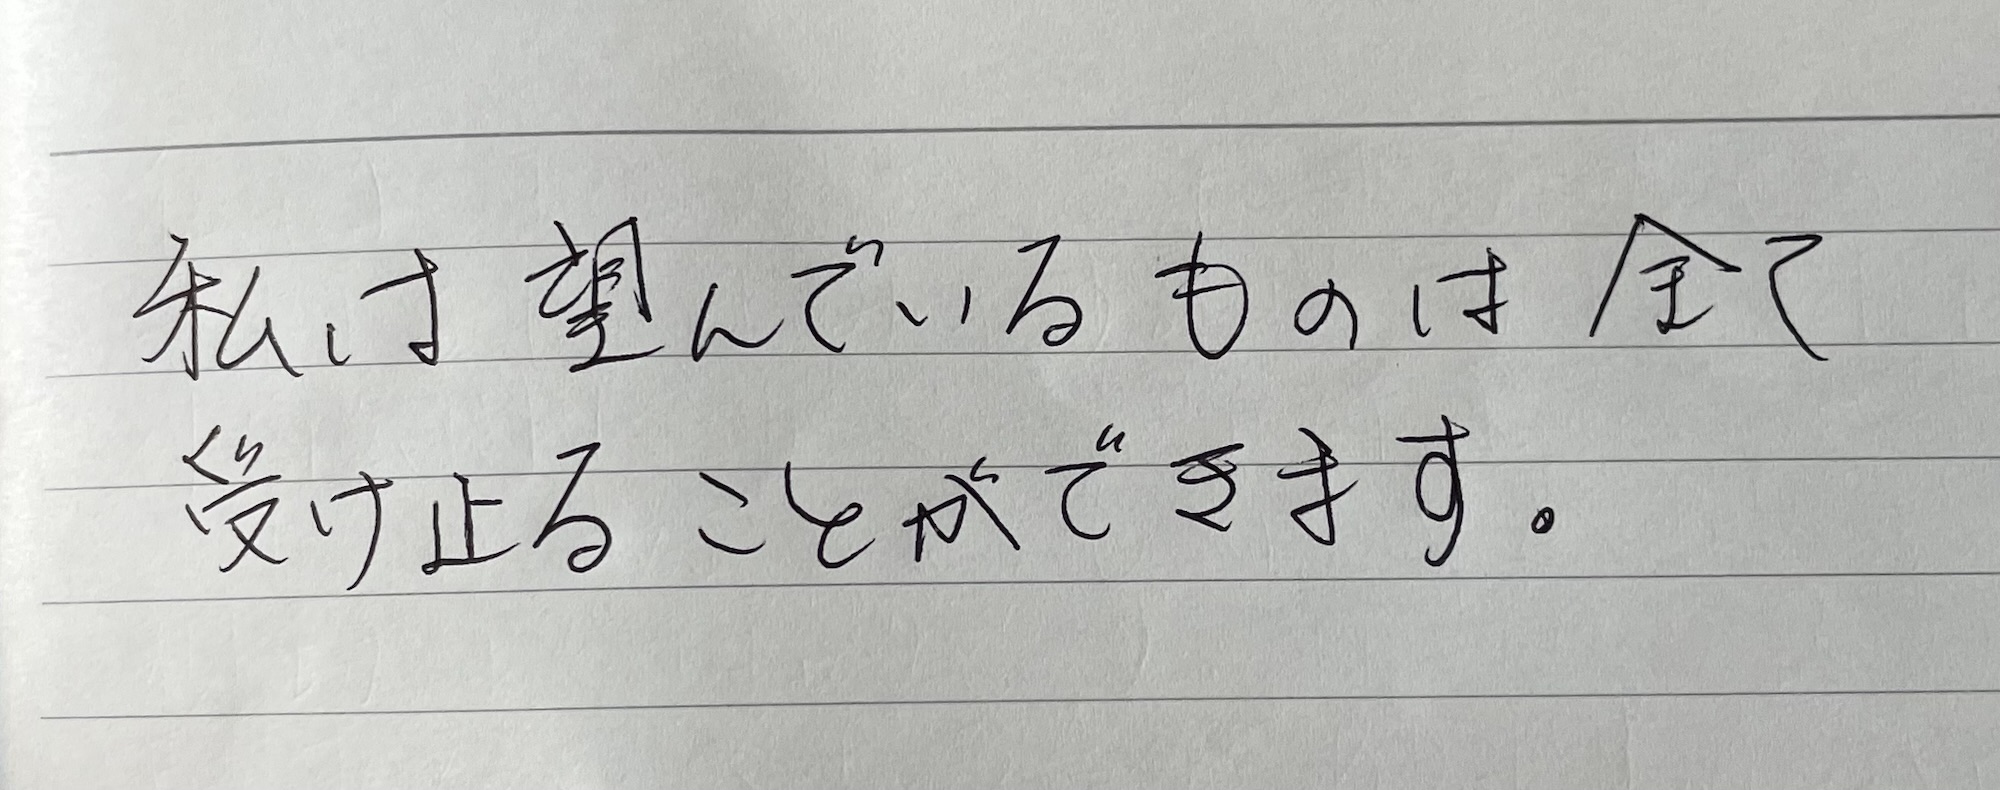 私は望んでいるものは全て
受け止ることができます。